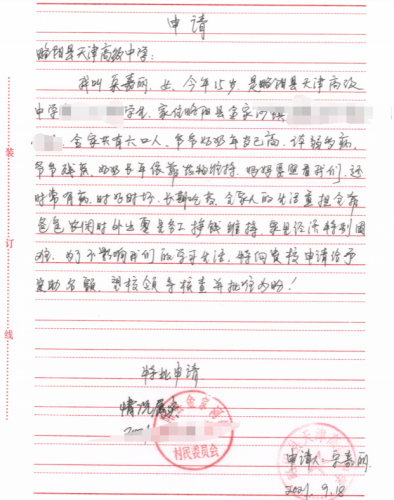 申请
略阳县天津高级中学:
我叫吴嘉丽,女,今年15岁,是略阳县天津高级
中学 学生,家住略阳县金家河镇
,全家共有六口人,爷爷奶奶年龄已高,体弱多病,
爷爷残疾,奶奶长年依靠药物维持,妈妈要照看我们,还
时常有病,时好时坏,长期吃药,全家人的生活重担全靠
爸爸农闲时外出零星务工挣钱维持,家里经济特别困
难,为了不影响我们的学年生活,特向贵校申请给予
资助名额,望校领导核查并批准为盼!
特此申请
情况属实
金家河
村民委员会
申请人:吴嘉丽
2021.9.18
装
订
线